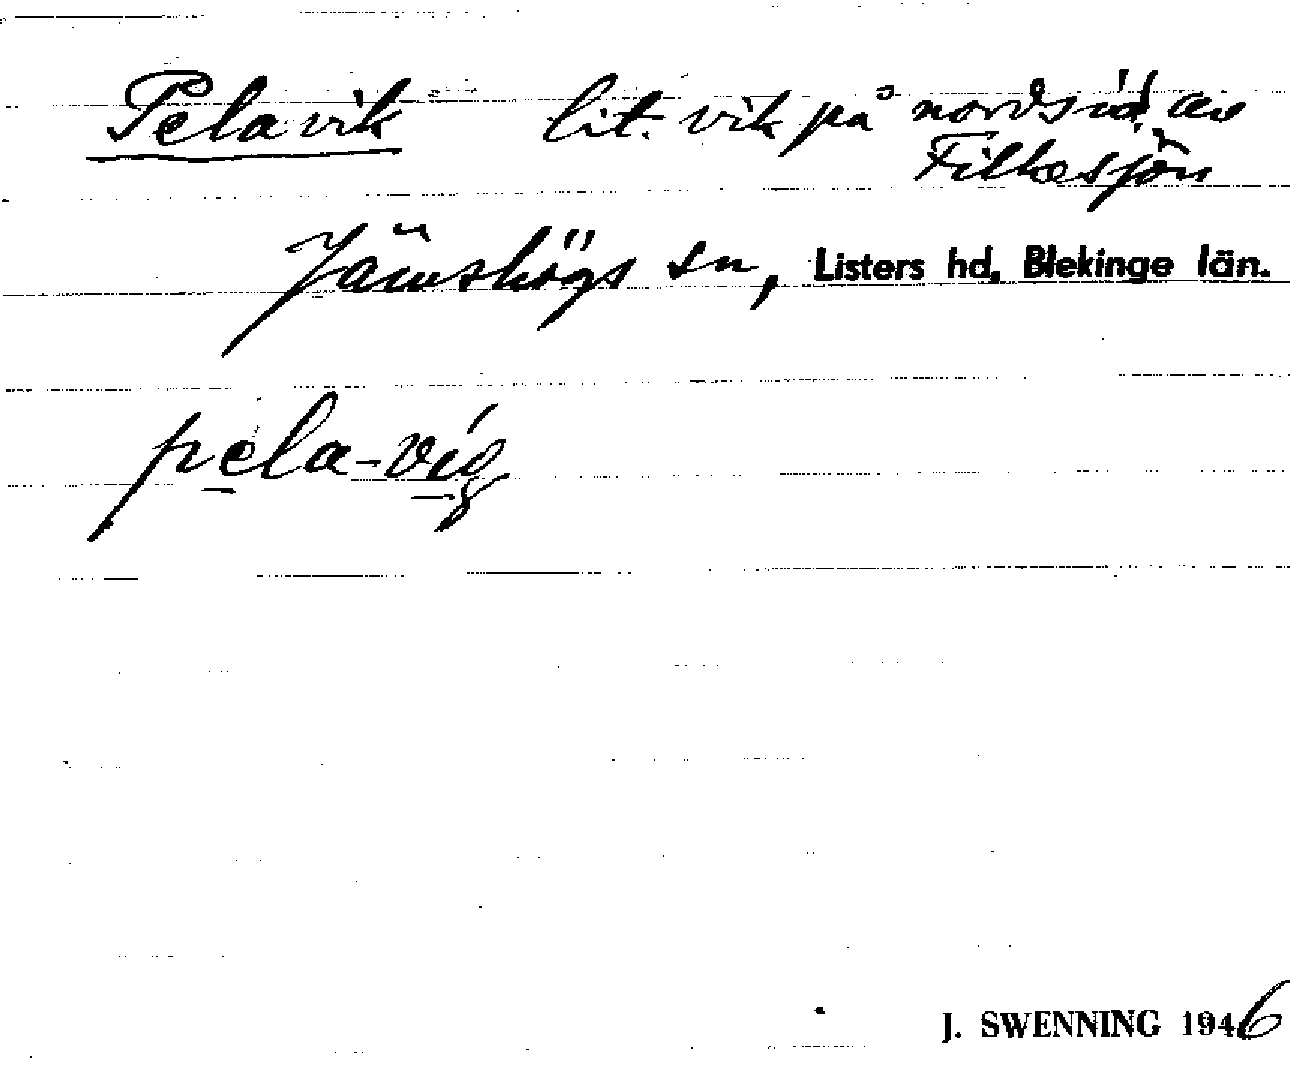 Pelavik lit. vik på nordsid. av
Filkesjön
Jämshögs sn, Listers hd, Blekinge län.
pela-vig
J. SWENNING 1946